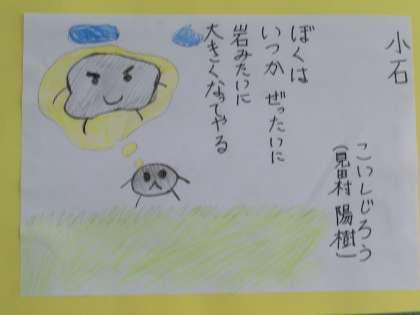 小石
こいしじろう
（見田村 陽樹）
ぼくは
いつか ぜったいに
岩みたいに
大きくなってやる